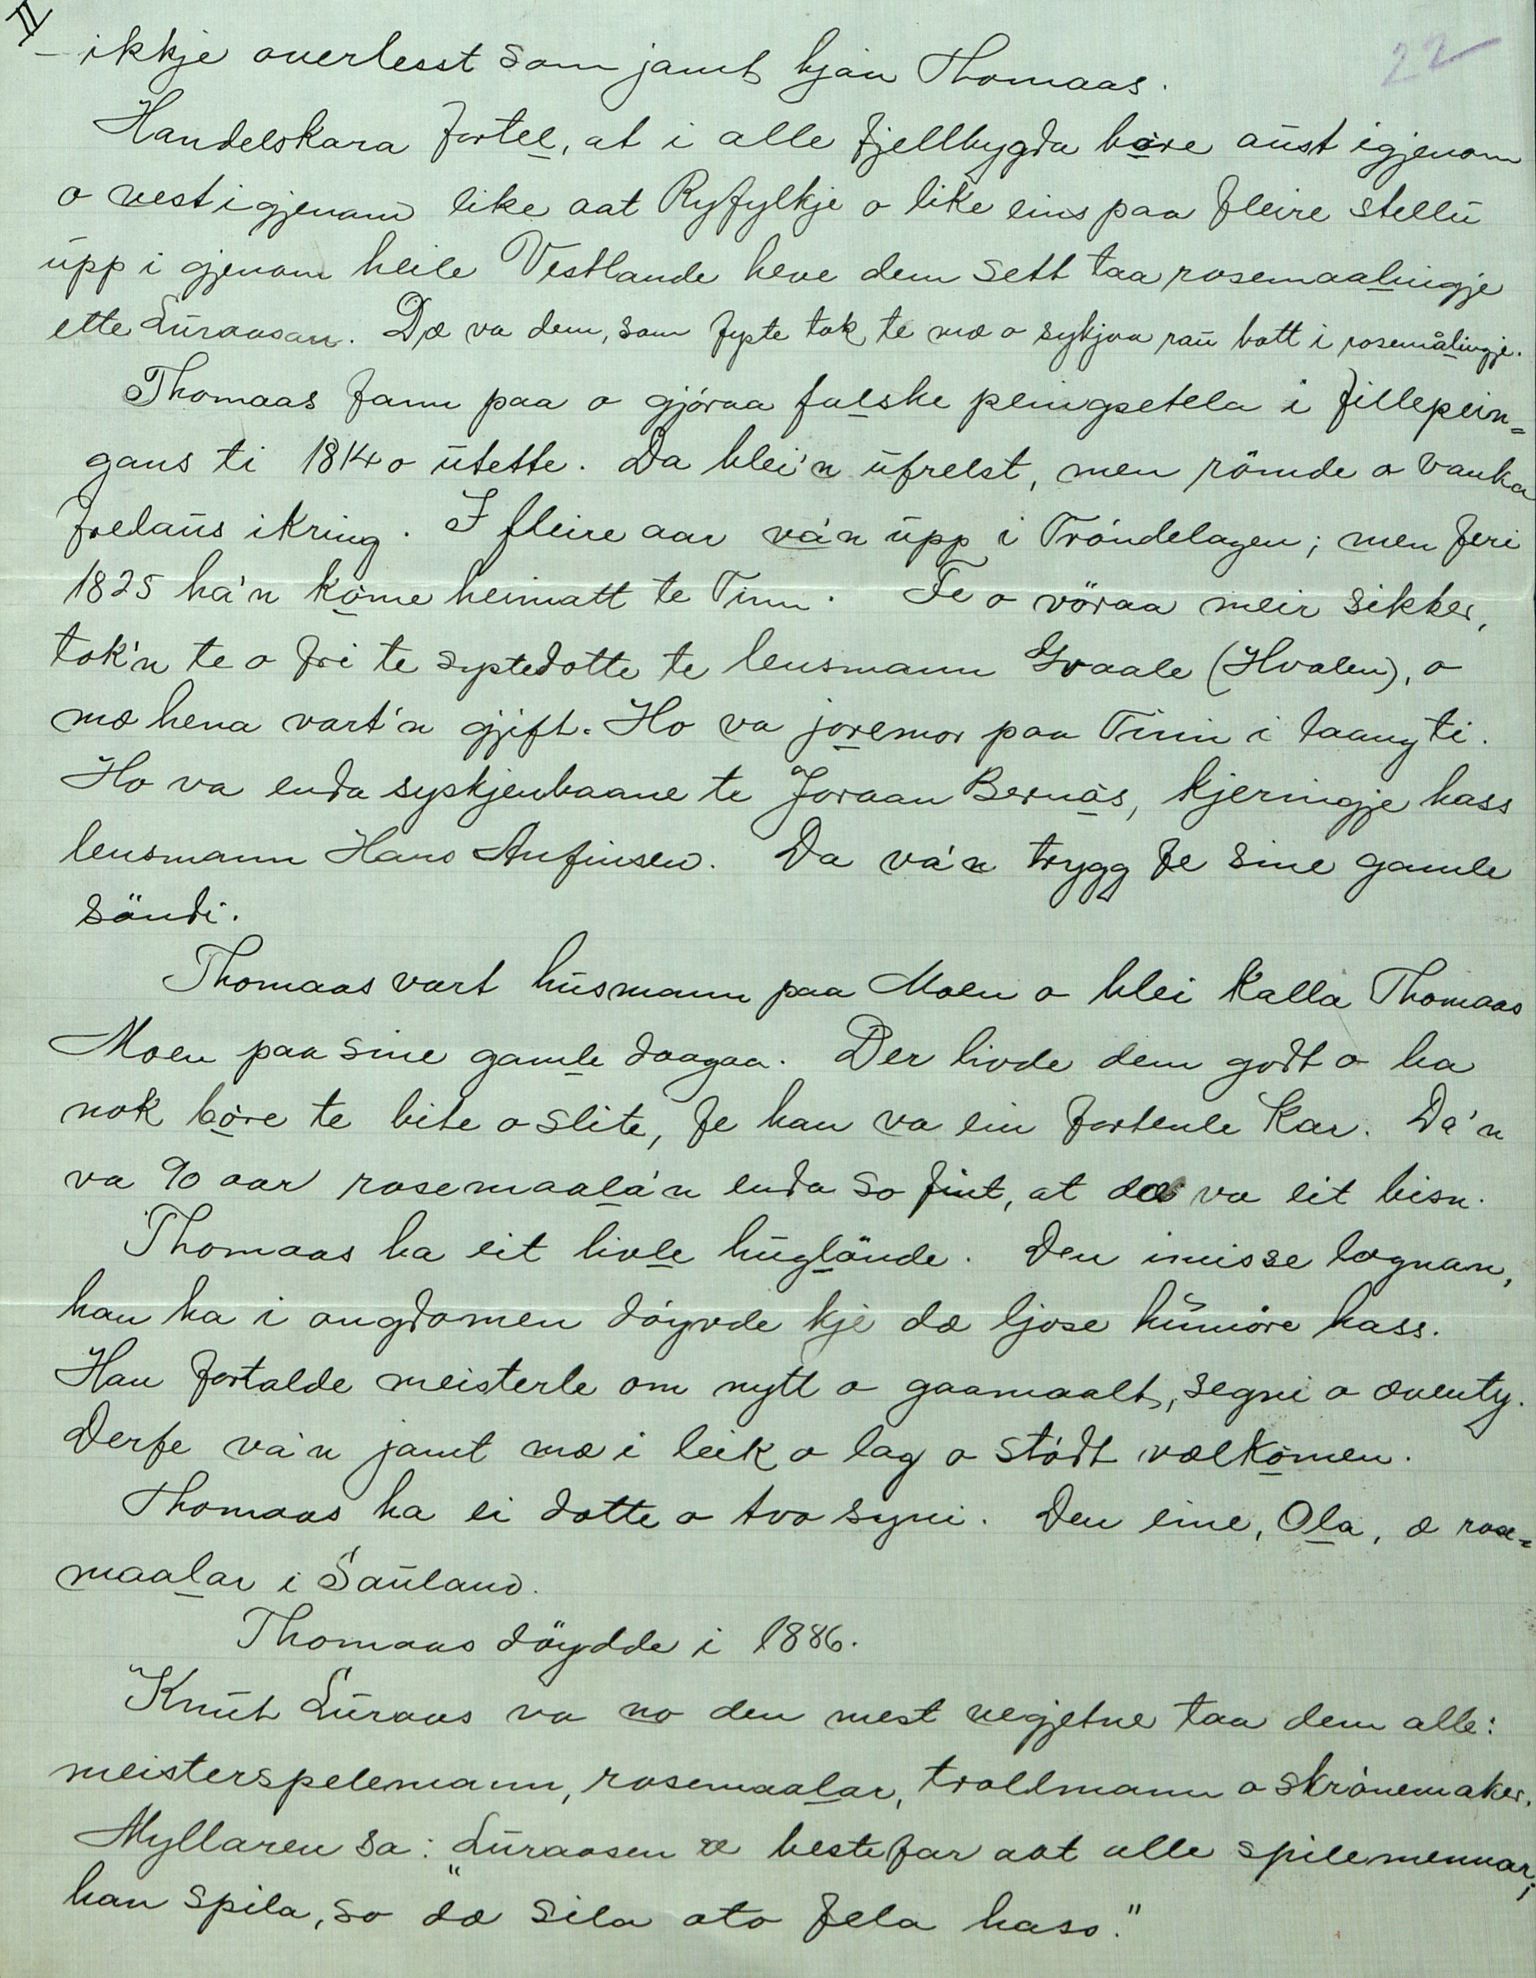 II 22
– ikkje overlesst som jamt hjaa Thomaas.
Handelskara fortel, at i alle fjellbygda bære aust igjenom
o vest igjenom like aat Ryfylkje o like eins paa fleire stellu
upp i gjenom heile Vestlande heve dem sett taa rosemaalingje
ette Luraasan. Dæ va dem, som fyste tok te mæ o sykjaa rau bott i rosemålingje.
Thomaas fann paa o gjöraa falske peingsetela i fillepein=
gans ti 1814 o utette. Da blei'n ufrelst, men römde o vanka
fredaus ikring. I fleire aar va'n upp i Tröndelagen; men feri
1825 ha'n kome heimatt te Tinn. Fe o vöraa meir sikker,
tok'n te o fri te systedotte te lensmann Gvaale (Hvalen), o
mæ hena vart'n gjift. Ho va joremor paa Tinn i laang ti.
Ho va enda syskjenbaane te Joraan Bernås, kjeringje hass
lensmann Hans Anfinsen. Da va'n trygg fe sine gamle
söndi.
Thomaas vart husmann paa Moen o blei kalla Thomaas
Moen paa sine gamle daagaa. Der livde dem godt o ha
nok böre te bite o slite, fe han va ein fortenle kar. Da'n
va 90 aar rosemaala'n enda so fint, at dæ va eit bisn.
Thomaas ha eit livle huglönde. Den imisse lagnan,
han ha i ungdomen döyvde kje dæ ljose humöre hass.
Han fortalde meisterle om nytt o gaamaalt, segni o æventy.
Derfe va'n jamt mæ i leik o lag o stödt vælkomen.
Thomaas ha ei dotte o tvo syni. Den eine, Ola, æ rose=
maalar i Sauland.
Thomaas döydde i 1886.
Knut Luraas va no den mest vegjetne taa dem alle:
meisterspelemann, rosemaalar, trollmann o skrönemaker.
Myllaren sa: "Luraasen æ bestefar aat alle spilemennar;
han spila, so dæ sila ato fela hass."